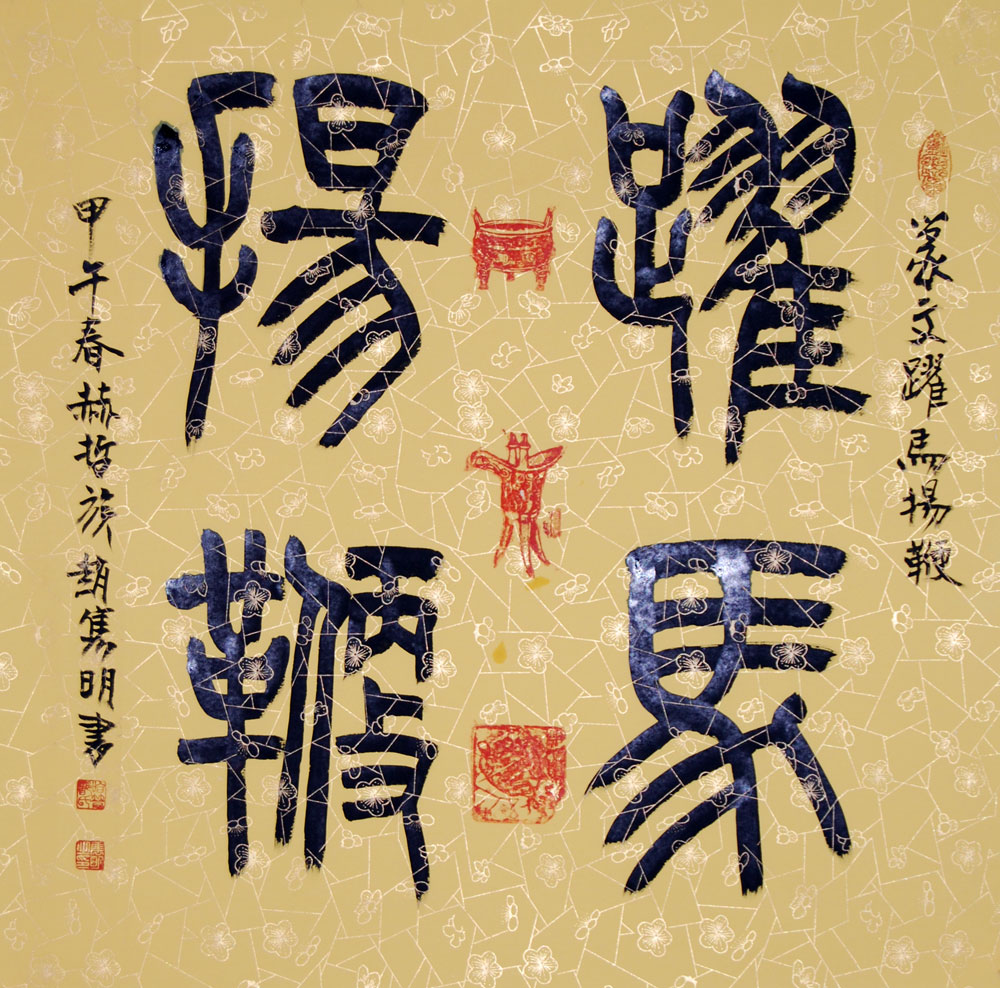 篆文躍馬揚鞭
躍馬
揚鞭
甲午春赫哲族趙雋明書